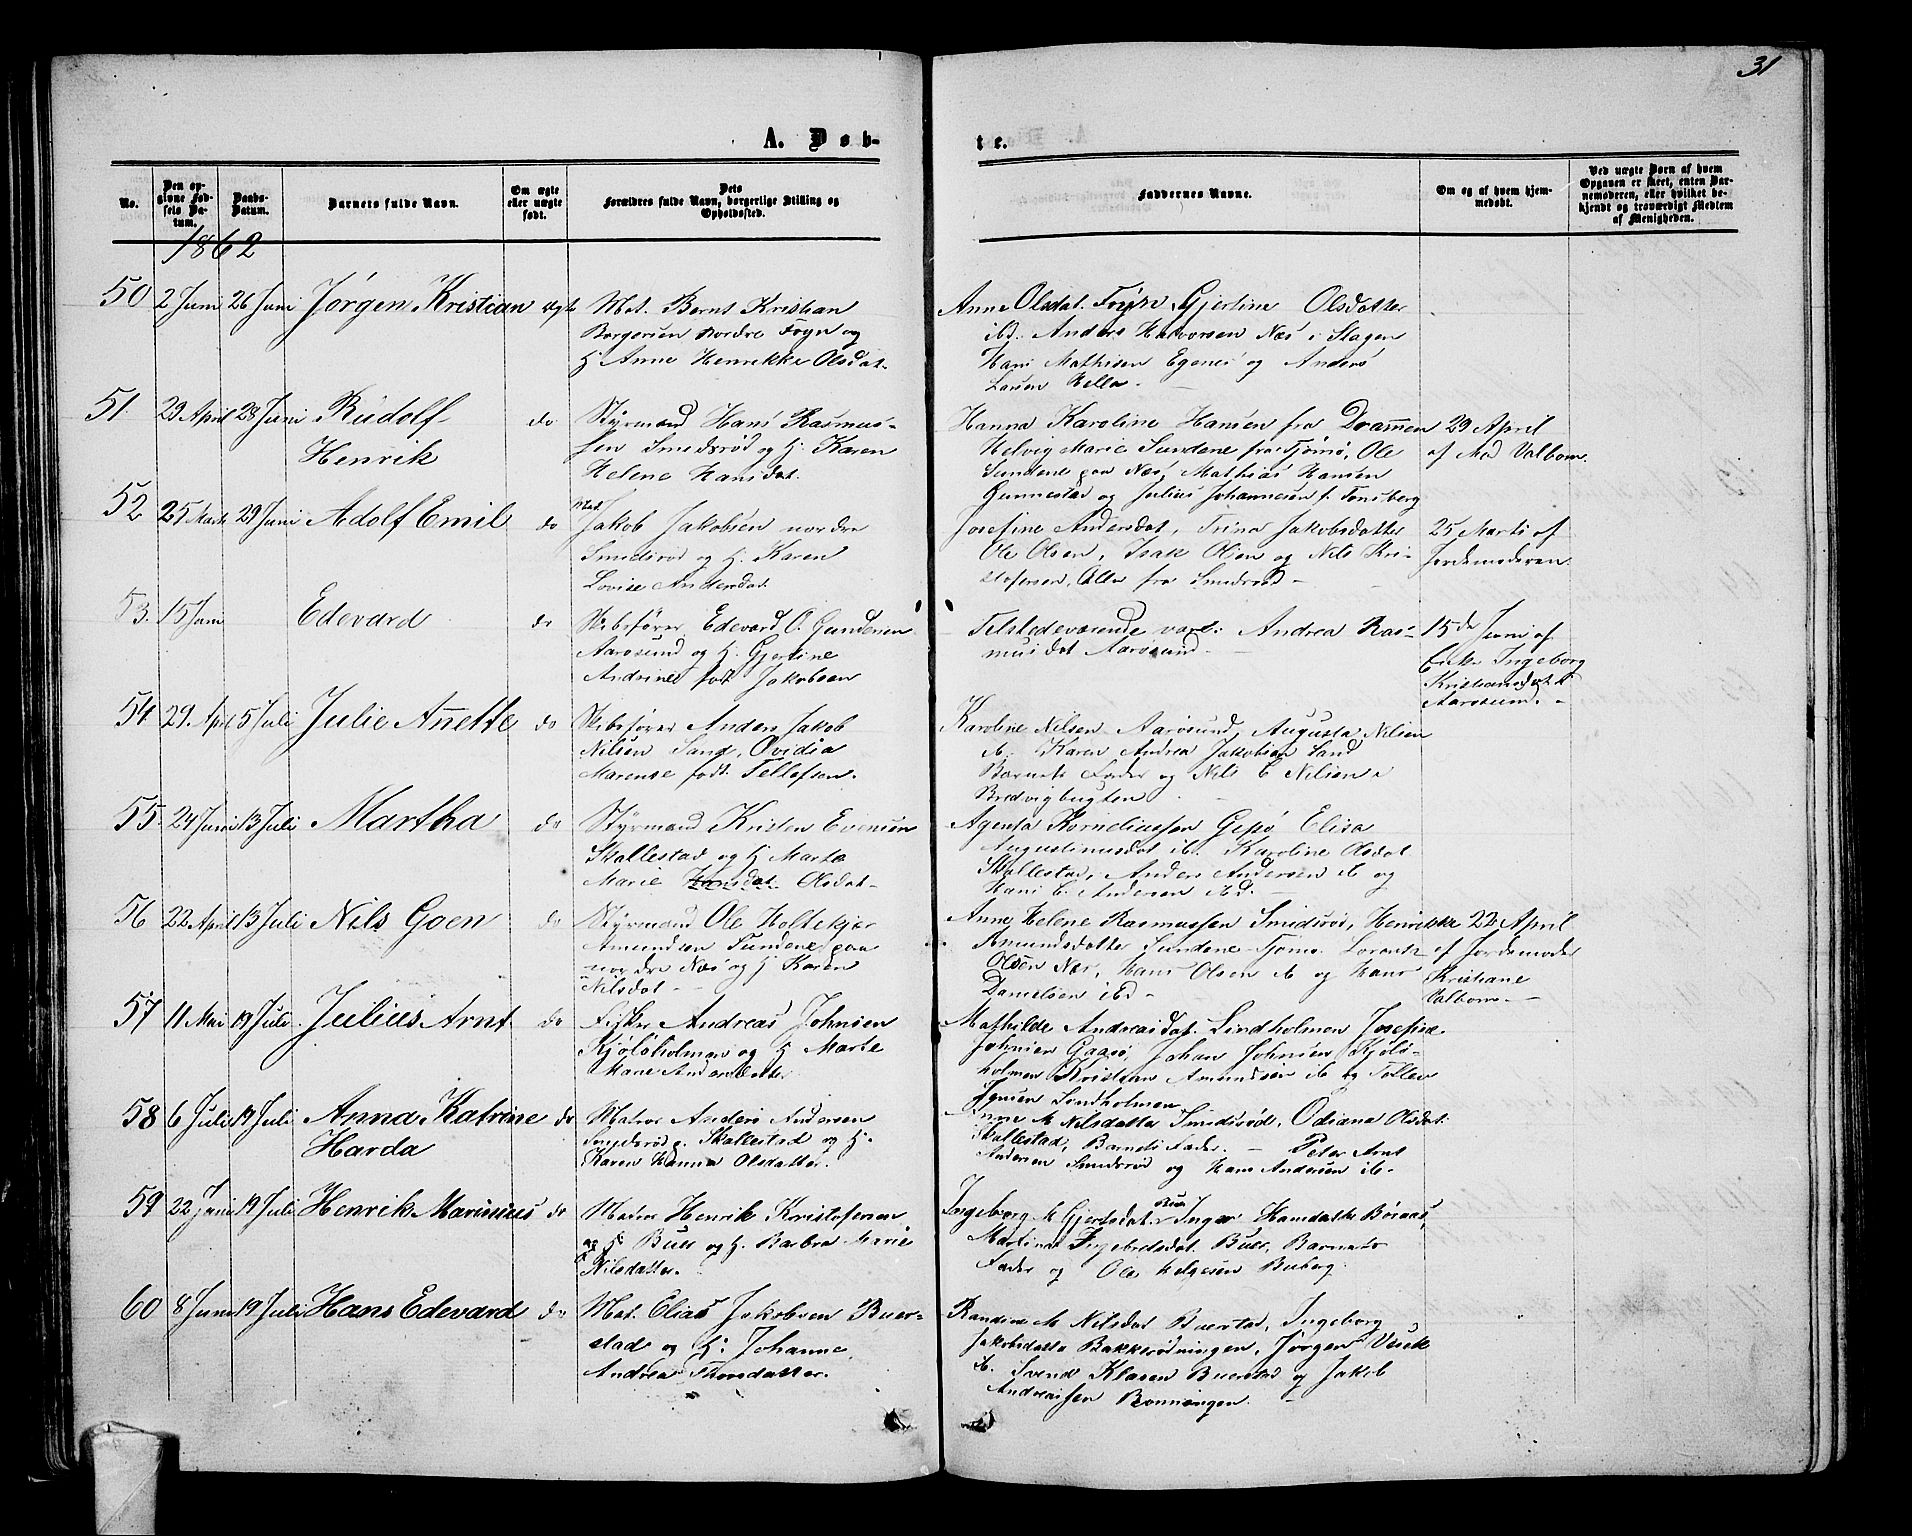 31
A. Døb-
te.
No.
Den op-
givne Fød-
sels Da-
tum.
Daabs-
Datum.
Barnets fulde Navn.
Om ægte
eller uægte
født.
Dets
Forældres fulde Navn, borgerlige Stilling og
Opholdssted.
Faddernes Navne.
Om og af hvem hjem-
medøbt.
Ved uægte Børn af hvem
Opgaven er skeet, enten Bar-
nemoderen, eller hvilket be-
kjendt og troværdigt Medlem
af Menigheden.
1862
50 2 Juni 26 Juni Jørgen Kristian ægte Mat. Bernt Kristian
Borgersen nordre Føyn og
H. Anne Henrikke Olsdat.
Anne Olsdat. Føyn, Gjertine Olsdatter
ibd. Anders Halvorsen Næs i Slagen
Hans Mathisen Egenes og Anders
Larsen Hella.
51. 23 April 28 Juni Rudolf
Henrik do Styrmand Hans Rasmus-
sen Smidsrød og H. Karen
Helene Hansdat.
Hanna Karoline Hansen fra Drammen
Helvig Marie Sundene fra Tjømø, Ole
Sundene paa Næs, Mathias Hansen
Gunnestad og Julius Johannesen f. Tønsberg
29 April
af Mad Valbom.
52 25 Marts 29 Juni Adolf Emil do Mat.
Jakob Jakobsen nordre
Smidsrød og H. Karen
Lovise Andersdat.
Josefine Andersdat, Trina Jakobsdatter
Ole Olsen, Isak Olsen og Nils Kri-
stofersen, Alle fra Smidsrød
25 Marts af
Jordemoderen.
53. 15 Juni Edevard do Skibsfører Edevard O. Gundersen
Aarøsund og H. Gjertine
Andrine født Jakobsen
Tilstedeværende vare: Andrea Ras-
musdat Aarøsund.
15de Juni af
Enke Ingeborg
Kristiansdat.
Aarøsund.
54 29. April 5 Juli Julie Anette do Skibsfører Anders Jakob
Nilsen Sand, Ovidia
Marense født Tellefsen.
Karoline Nilsen Aarøsund, Augusta Nilsen
ib. Karen Andrea Jakobsen Sand
Barnets Fader og Nils C Nilsen i
Bredvigbugten
55. 24 Juni 13 Juli Martha do Styrmand Kristen Evensen
Skallestad og H Marte
Marie Hansdat. Olsdat.
Agenta Korneliussen Gipø Elisa
Augustinusdat ib. Karoline Olsdat
Skallestad, Anders Andersen ib og
Hans C. Andersen ibd.
56 22 April 13 Juli Nils Goen do Styrmand Ole Holtekjær
Amundsen Sundene paa
nordre Næs og H Karen
Nilsdat.
Anne Helene Rasmussen Smidsrød, Henrikke
Amundsdatter Sundene Tjømø. Lorentz
Olsen Næs, Hans Olsen ib og Hans
Danielsen ibd
22 April
af Jordemoder
Kristiane
Valbom.
57 11 Mai 19 Juli Julius Arnt do Fisker Andreas Johnsen
Kjøløholmen og H Marte
Marie Andersdatter
Mathilde Andreasdat. Lindholmen Josefine
Johnsen Gaasø, Johan Johnsen Kjølø-
holmen Kristian Amundsen ib og Tollev
Lindholmen
58 6 Juli 19 Juli Anna Katrine
Harda do Matros Anders Andersen
Smidsrød p. Skallestad og H.
Karen Hanna Olsdatter.
Anne M Nilsdatter Smidsrød, Odiana Olsdat.
Skallestad, Barnets Fader. Peter Arnt
Andersen Smidsrød og Hans Andersen ib.
59 22 Juni 19 Juli Henrik Marinius do Matros Henrik Kristofersen
Buer og H. Barbra Marie
Nilsdatter.
Ingeborg M Gjertsdat. Buer Inger Hansdatter Boraas,
Martine Ingebretsdat. Buer, Barnets
Fader og Ole Helgesen Buberg.
60 8 Juni 19 Juli Hans Edevard do Mat. Elias Jakobsen Buer-
stad og H: Johanne
Andrea Thorsdatter.
Randine M Nilsdat Buerstad, Ingeborg
Jakobsdatter Bakkerødningen, Jørgen
ib. Svend Klasen Buerstad og Jakob
Andreassen Rønningen.